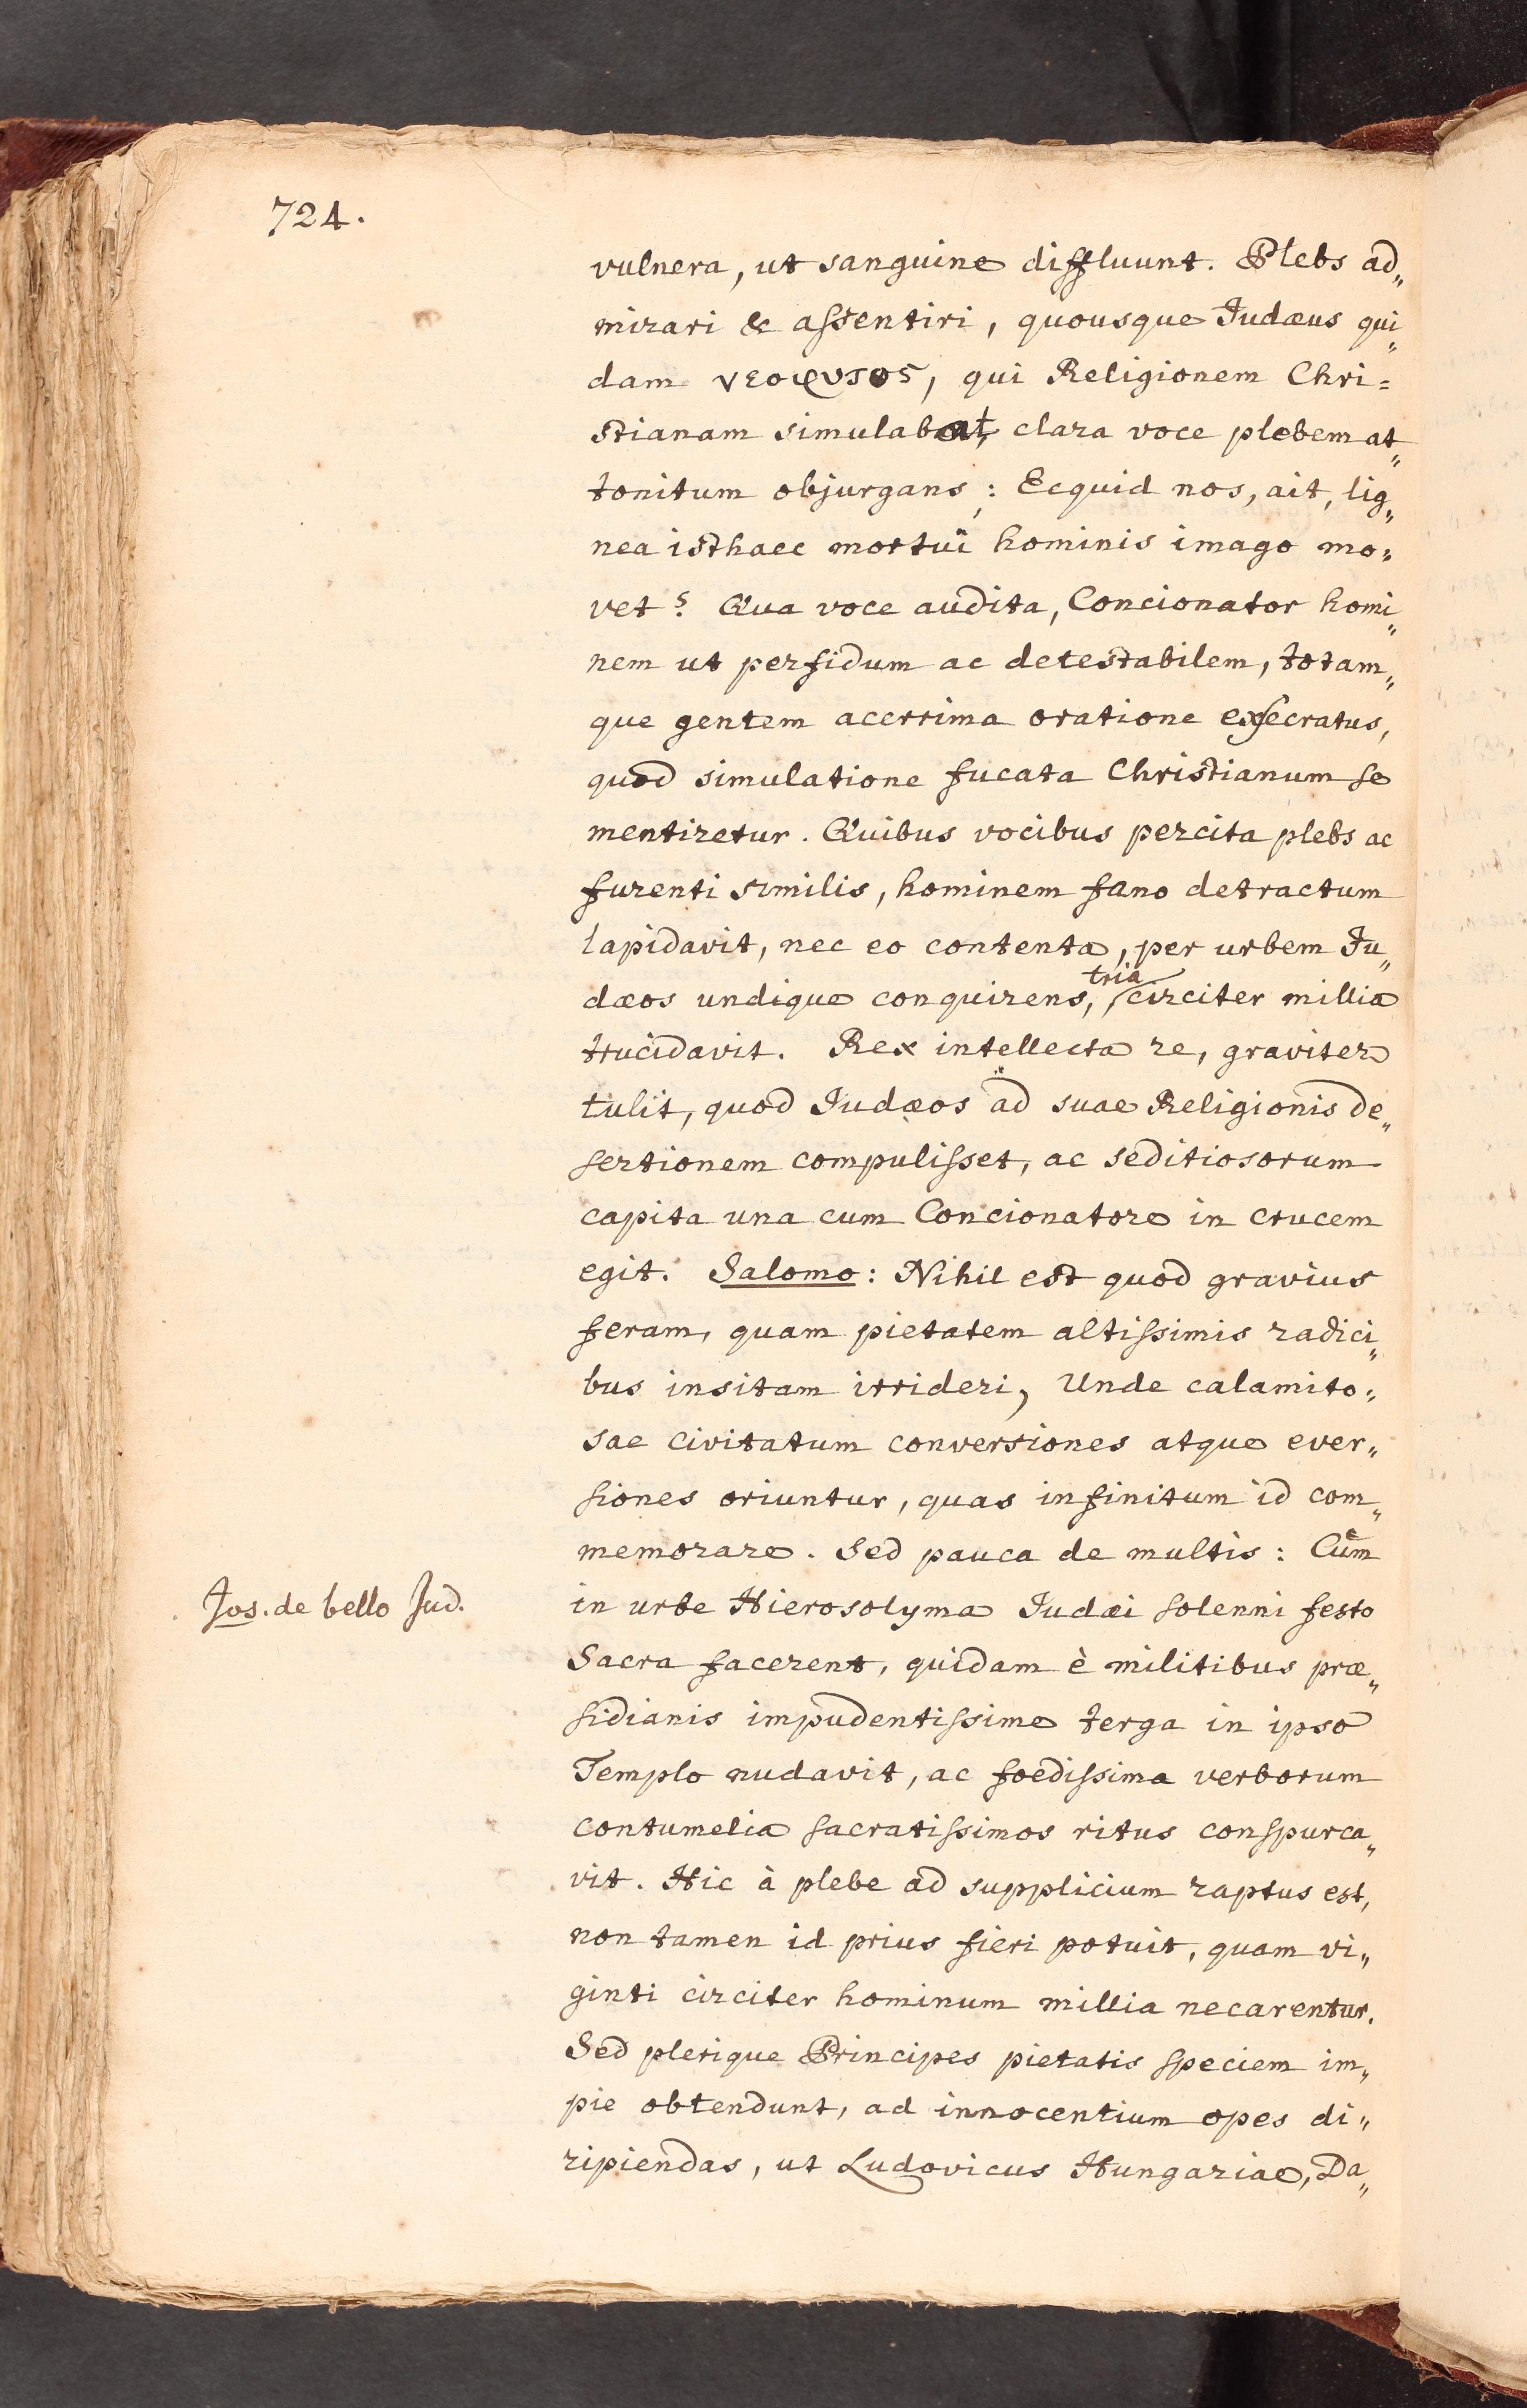 724.
vulnera, ut sanguine diffluunt. Plebs ad„
mirari & assentiri, quousque Judæus qui„
dam νεοφυτος, qui Religionem Chri=
stianam simulabat, clara voce plebem at„
tonitum objurgans,: Ecquid nos, ait, lig„
nea isthaec mortui hominis imago mo„
vet? Qua voce audita, Concionator homi„
nem ut perfidum ac detestabilem, totam„
que gentem acerrima oratione exsecratus,
quod simulatione fucata Christianum se
mentiretur. Quibus vocibus percita plebs ac
furenti similis, hominem fano detractum
lapidavit, nec eo contenta, per urbem Ju„
dæos undique conquirens, tria circiter millia
trucidavit. Rex intellecta re, graviter
tulit, quod Judæos ad suae Religionis de„
sertionem compulisset, ac seditiosorum
capita una cum Concionatore in crucem
egit. Salomo: Nihil est quod gravius
feram, quam pietatem altissimis radici„
bus insitam irrideri, Unde calamito„
sae civitatum conversiones atque ever„
siones oriuntur, quas infinitum id com„
memorare. Sed pauca de multis: Cùm
Jos. de bello Jud.
in urbe Hierosolyma Judæi solenni festo
Sacra facerent, quidam è militibus præ„
sidianis impudentissime terga in ipso
Templo nudavit, ac foedissima verborum
contumelia sacratissimos ritus conspurca„
vit. Hic à plebe ad supplicium raptus est,
non tamen id prius fieri potuit, quam vi„
ginti circiter hominum millia necarentur.
Sed plerique Principes pietatis speciem im„
pie obtendunt, ad innocentium opes di„
ripiendas, ut Ludovicus Hungariae, Da„